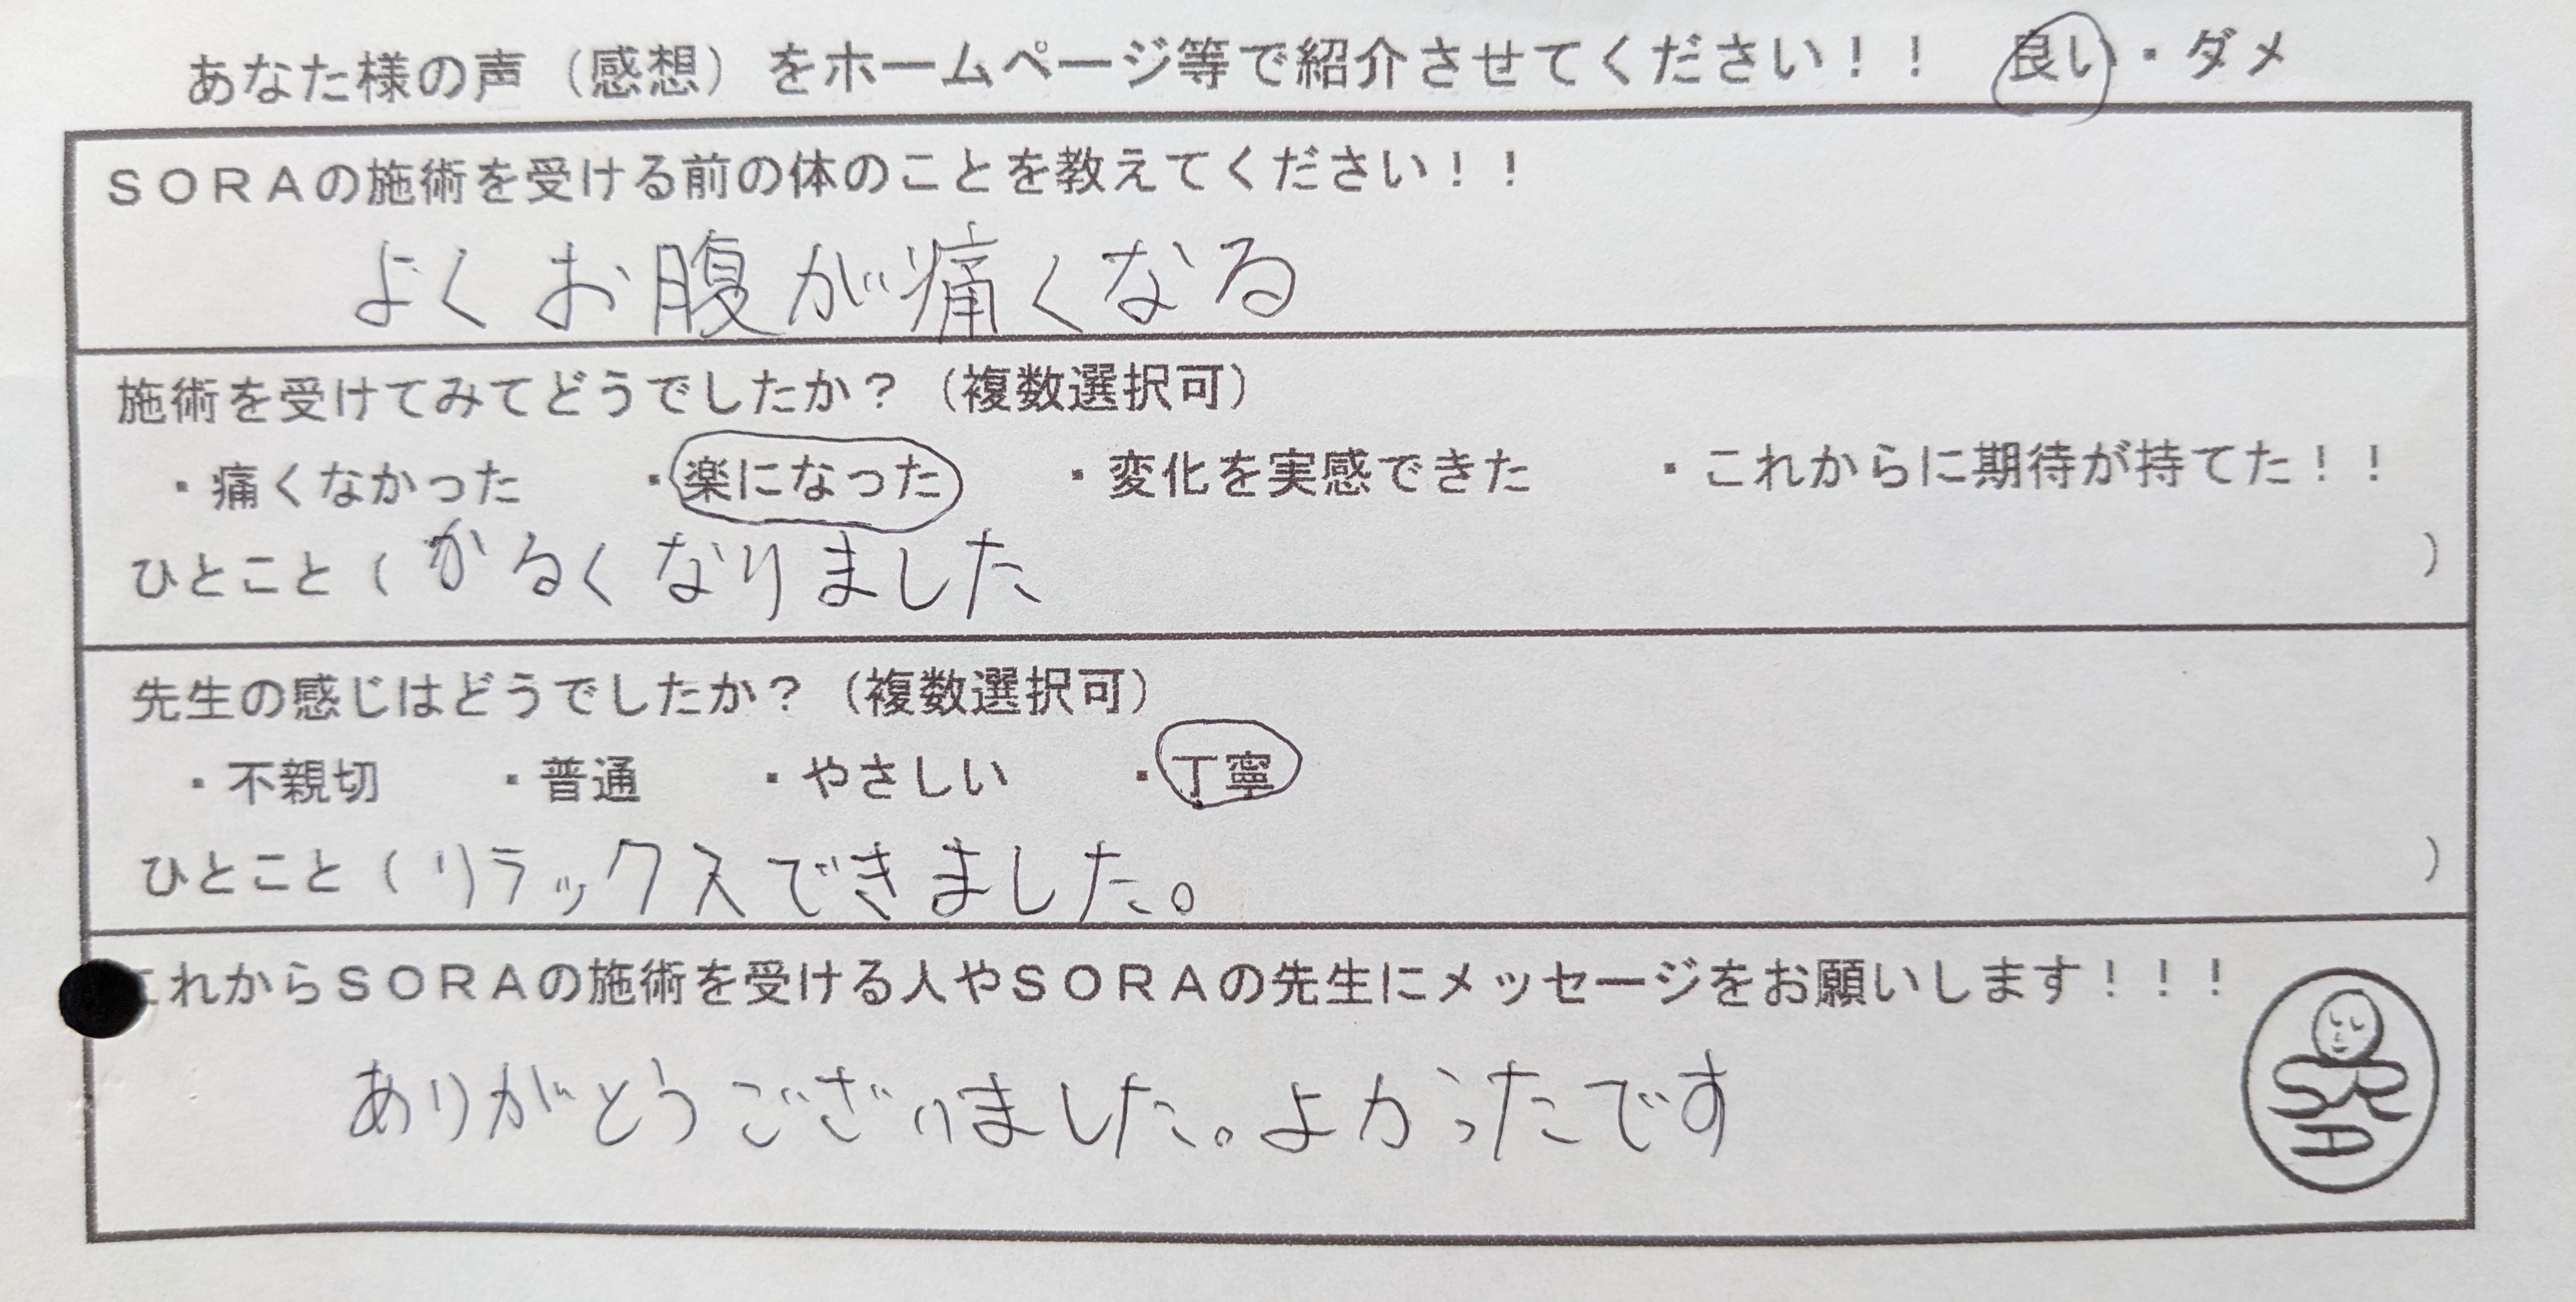 あなた様の声（感想）をホームページ等で紹介させてください！！　良い・ダメ
ＳＯＲＡの施術を受ける前の体のことを教えてください！！
よくお腹が痛くなる
施術を受けてみてどうでしたか？（複数選択可）
・痛くなかった　・楽になった　・変化を実感できた　・これからに期待が持てた！！
ひとこと（かるくなりました）
先生の感じはどうでしたか？（複数選択可）
・不親切　・普通　・やさしい　・丁寧
ひとこと（リラックスできました。）
これからＳＯＲＡの施術を受ける人やＳＯＲＡの先生にメッセージをお願いします！！！
ありがとうございました。よかったです